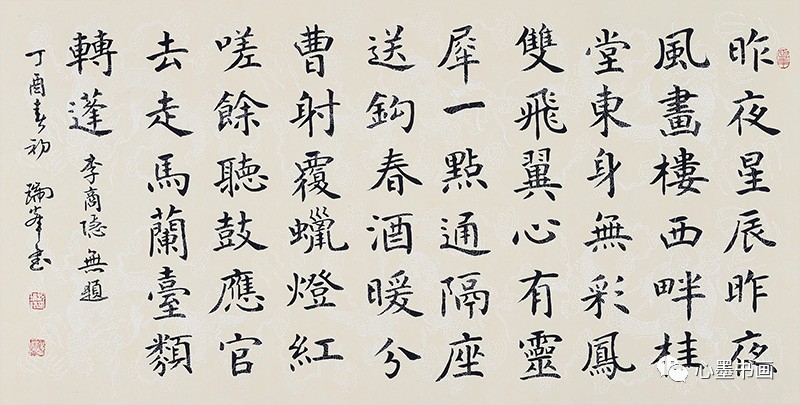 昨夜星辰昨夜
風畫樓西畔桂
堂東身無彩鳳
雙飛翼心有靈
犀一點通隔座
送鈎春酒暖分
曹射覆蠟燈紅
嗟餘聽鼓應官
去走馬蘭臺類
轉蓬 李商隱無題
丁酉春初 瑞峯書
心墨书画